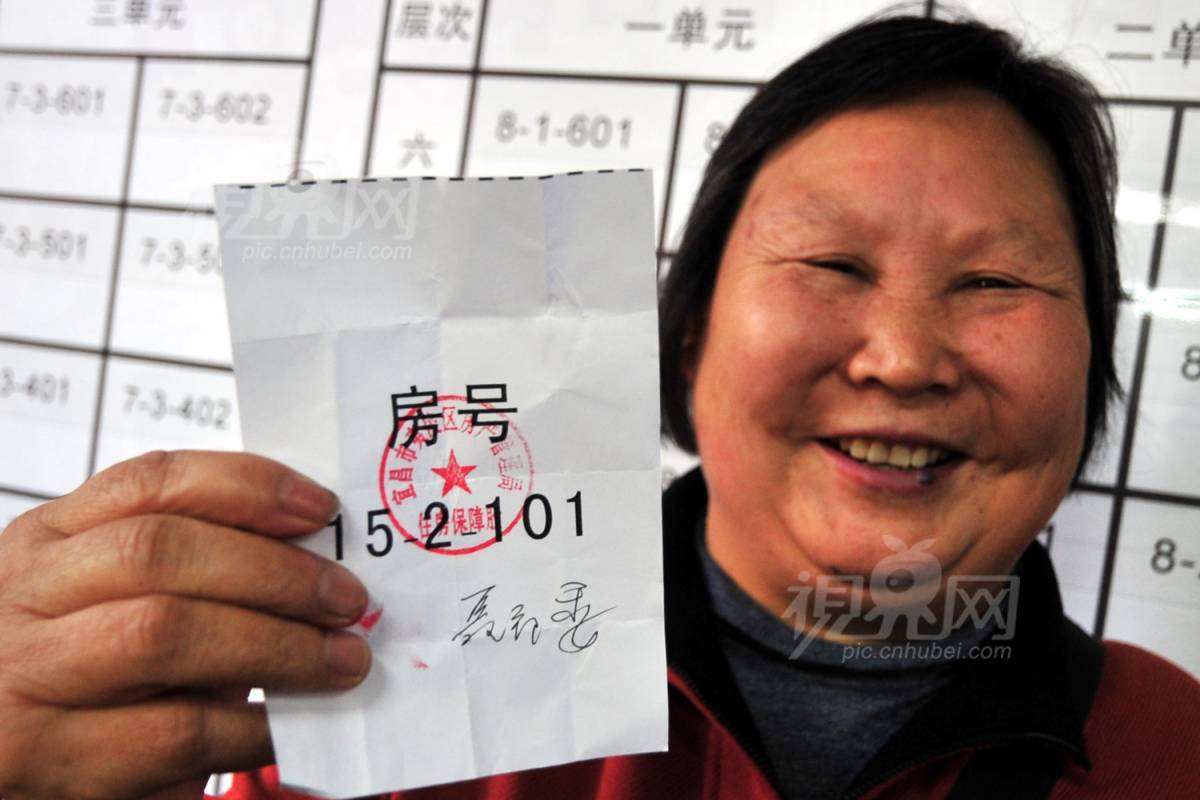 三单元
层次
一单元
二单
7-3-601
7-3-602
六
8-1-601
7-3-501
7-3-401
7-3-402
视界网
pic.cnhubei.com
房号
宜昌市
住房保障
15-2-101
视界网
pic.cnhubei.com